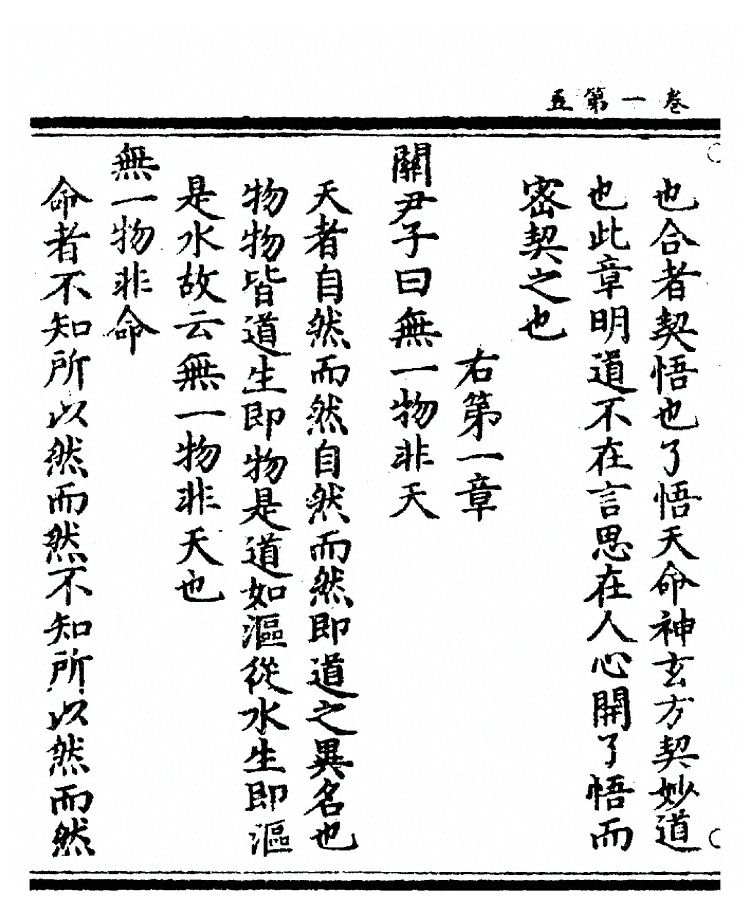 卷一第五
也合者契悟也了悟天命神玄方契妙道
也此章明道不在言思在人心開了悟而
密契之也
右第一章
關尹子曰無一物非天
天者自然而然自然而然即道之異名也
物物皆道生即物是道如漚從水生即漚
是水故云無一物非天也
無一物非命
命者不知所以然而然不知所以然而然